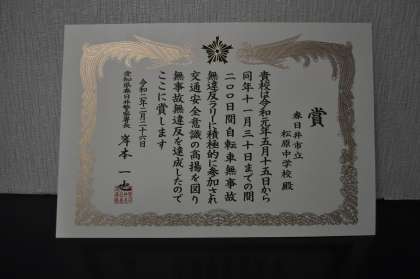 賞
春日井市立
松原中学校 殿
貴校は令和元年五月十五日から
同年十一月三十日までの間
二〇〇日間自転車無事故
無違反ラリーに積極的に参加され
交通安全意識の高揚を図り
無事故無違反を達成したので
ここに賞します
令和二年二月二十六日
愛知県春日井警察署長 岸本 一也